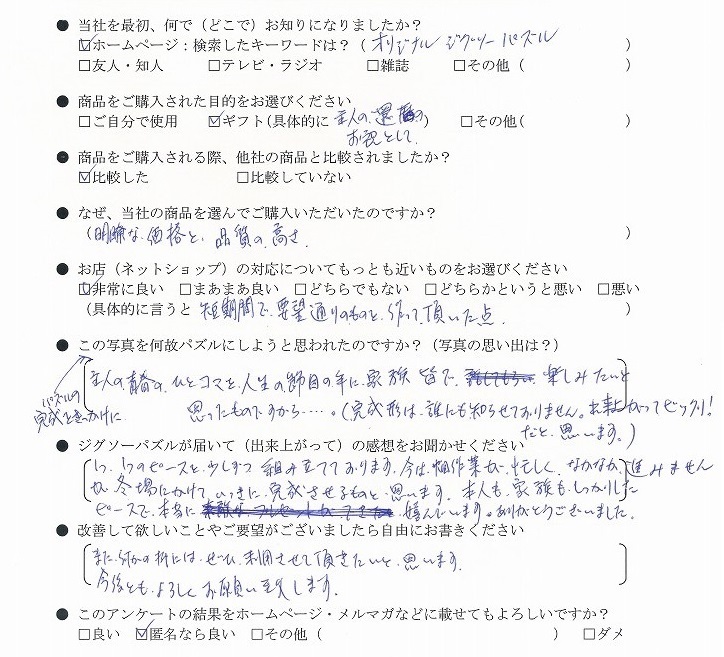 ● 当社を最初、何で（どこで）お知りになりましたか？
☑ホームページ：検索したキーワードは？（ オリジナル ジグソーパズル ）
□友人・知人 □テレビ・ラジオ □雑誌 □その他（ ）
● 商品をご購入された目的をお選びください
□ご自分で使用 ☑ギフト(具体的に 主人の還暦の ) □その他( )
お祝として
● 商品をご購入される際、他社の商品と比較されましたか？
☑比較した □比較していない
● なぜ、当社の商品を選んでご購入いただいたのですか？
(明瞭な価格と、品質の高さ )
● お店（ネットショップ）の対応についてもっとも近いものをお選びください
☑非常に良い □まあまあ良い □どちらでもない □どちらかというと悪い □悪い
(具体的に言うと 短期間で、要望通りのものを、作って頂いた点 )
● この写真を何故パズルにしようと思われたのですか？（写真の思い出は？）
パズルの
完成をきっかけに
主人の、青春の、ひとコマを、人生の節目の年に、家族 皆で、 楽しみたいと
思ったものですから‥‥。(完成形は、誰にも知らせておりません。出来上がってビックリ!
だと、思います。)
● ジグソーパズルが届いて（出来上がって）の感想をお聞かせください
1つ、1つのピースを、少しずつ 組み立てております。今は、畑作業が、忙しく、なかなか、進みません
が、冬場にかけて、いっきに、完成させるものと、思います。本人も、家族も、しっかりした
ピースで、本当に 嬉んでいます。ありがとうございました。
● 改善して欲しいことやご要望がございましたら自由にお書きください
また、何かの折には、ぜひ、利用させて頂きたいと、思います。
今後とも、よろしくお願い致します。
● このアンケートの結果をホームページ・メルマガなどに載せてもよろしいですか？
□良い ☑匿名なら良い □その他（ ） □ダメ